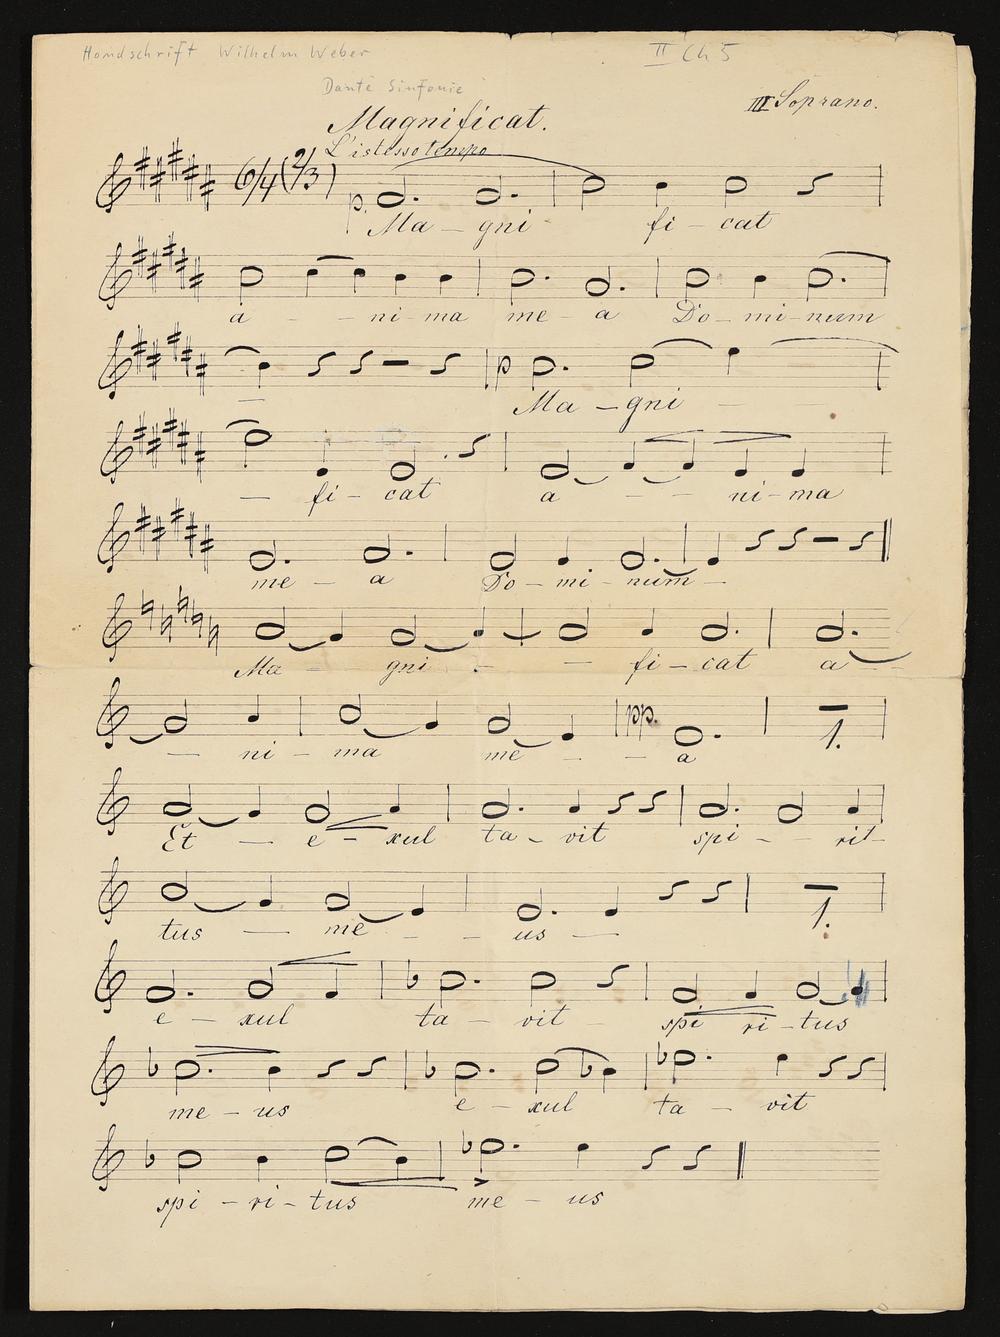 Handschrift Wilhelm Weber
II Ch 5
Dante Sinfonie
III Soprano.
Magnificat.
L'istesso tempo
6/4 (2/3)
p.
Ma - gni fi - cat
a - - ni - ma me - a Do - mi - num
p
Ma - gni - -
- fi - cat a - - ni - ma
me - a Do - mi - num -
Ma - gni - - fi - cat a -
- ni - ma me - - a
pp.
1.
Et - e - xul ta - vit spi - - rit -
tus - me - - us -
1.
e - xul ta - vit - spi ri - tus
me - us e - xul ta - vit
spi - ri - tus me - us